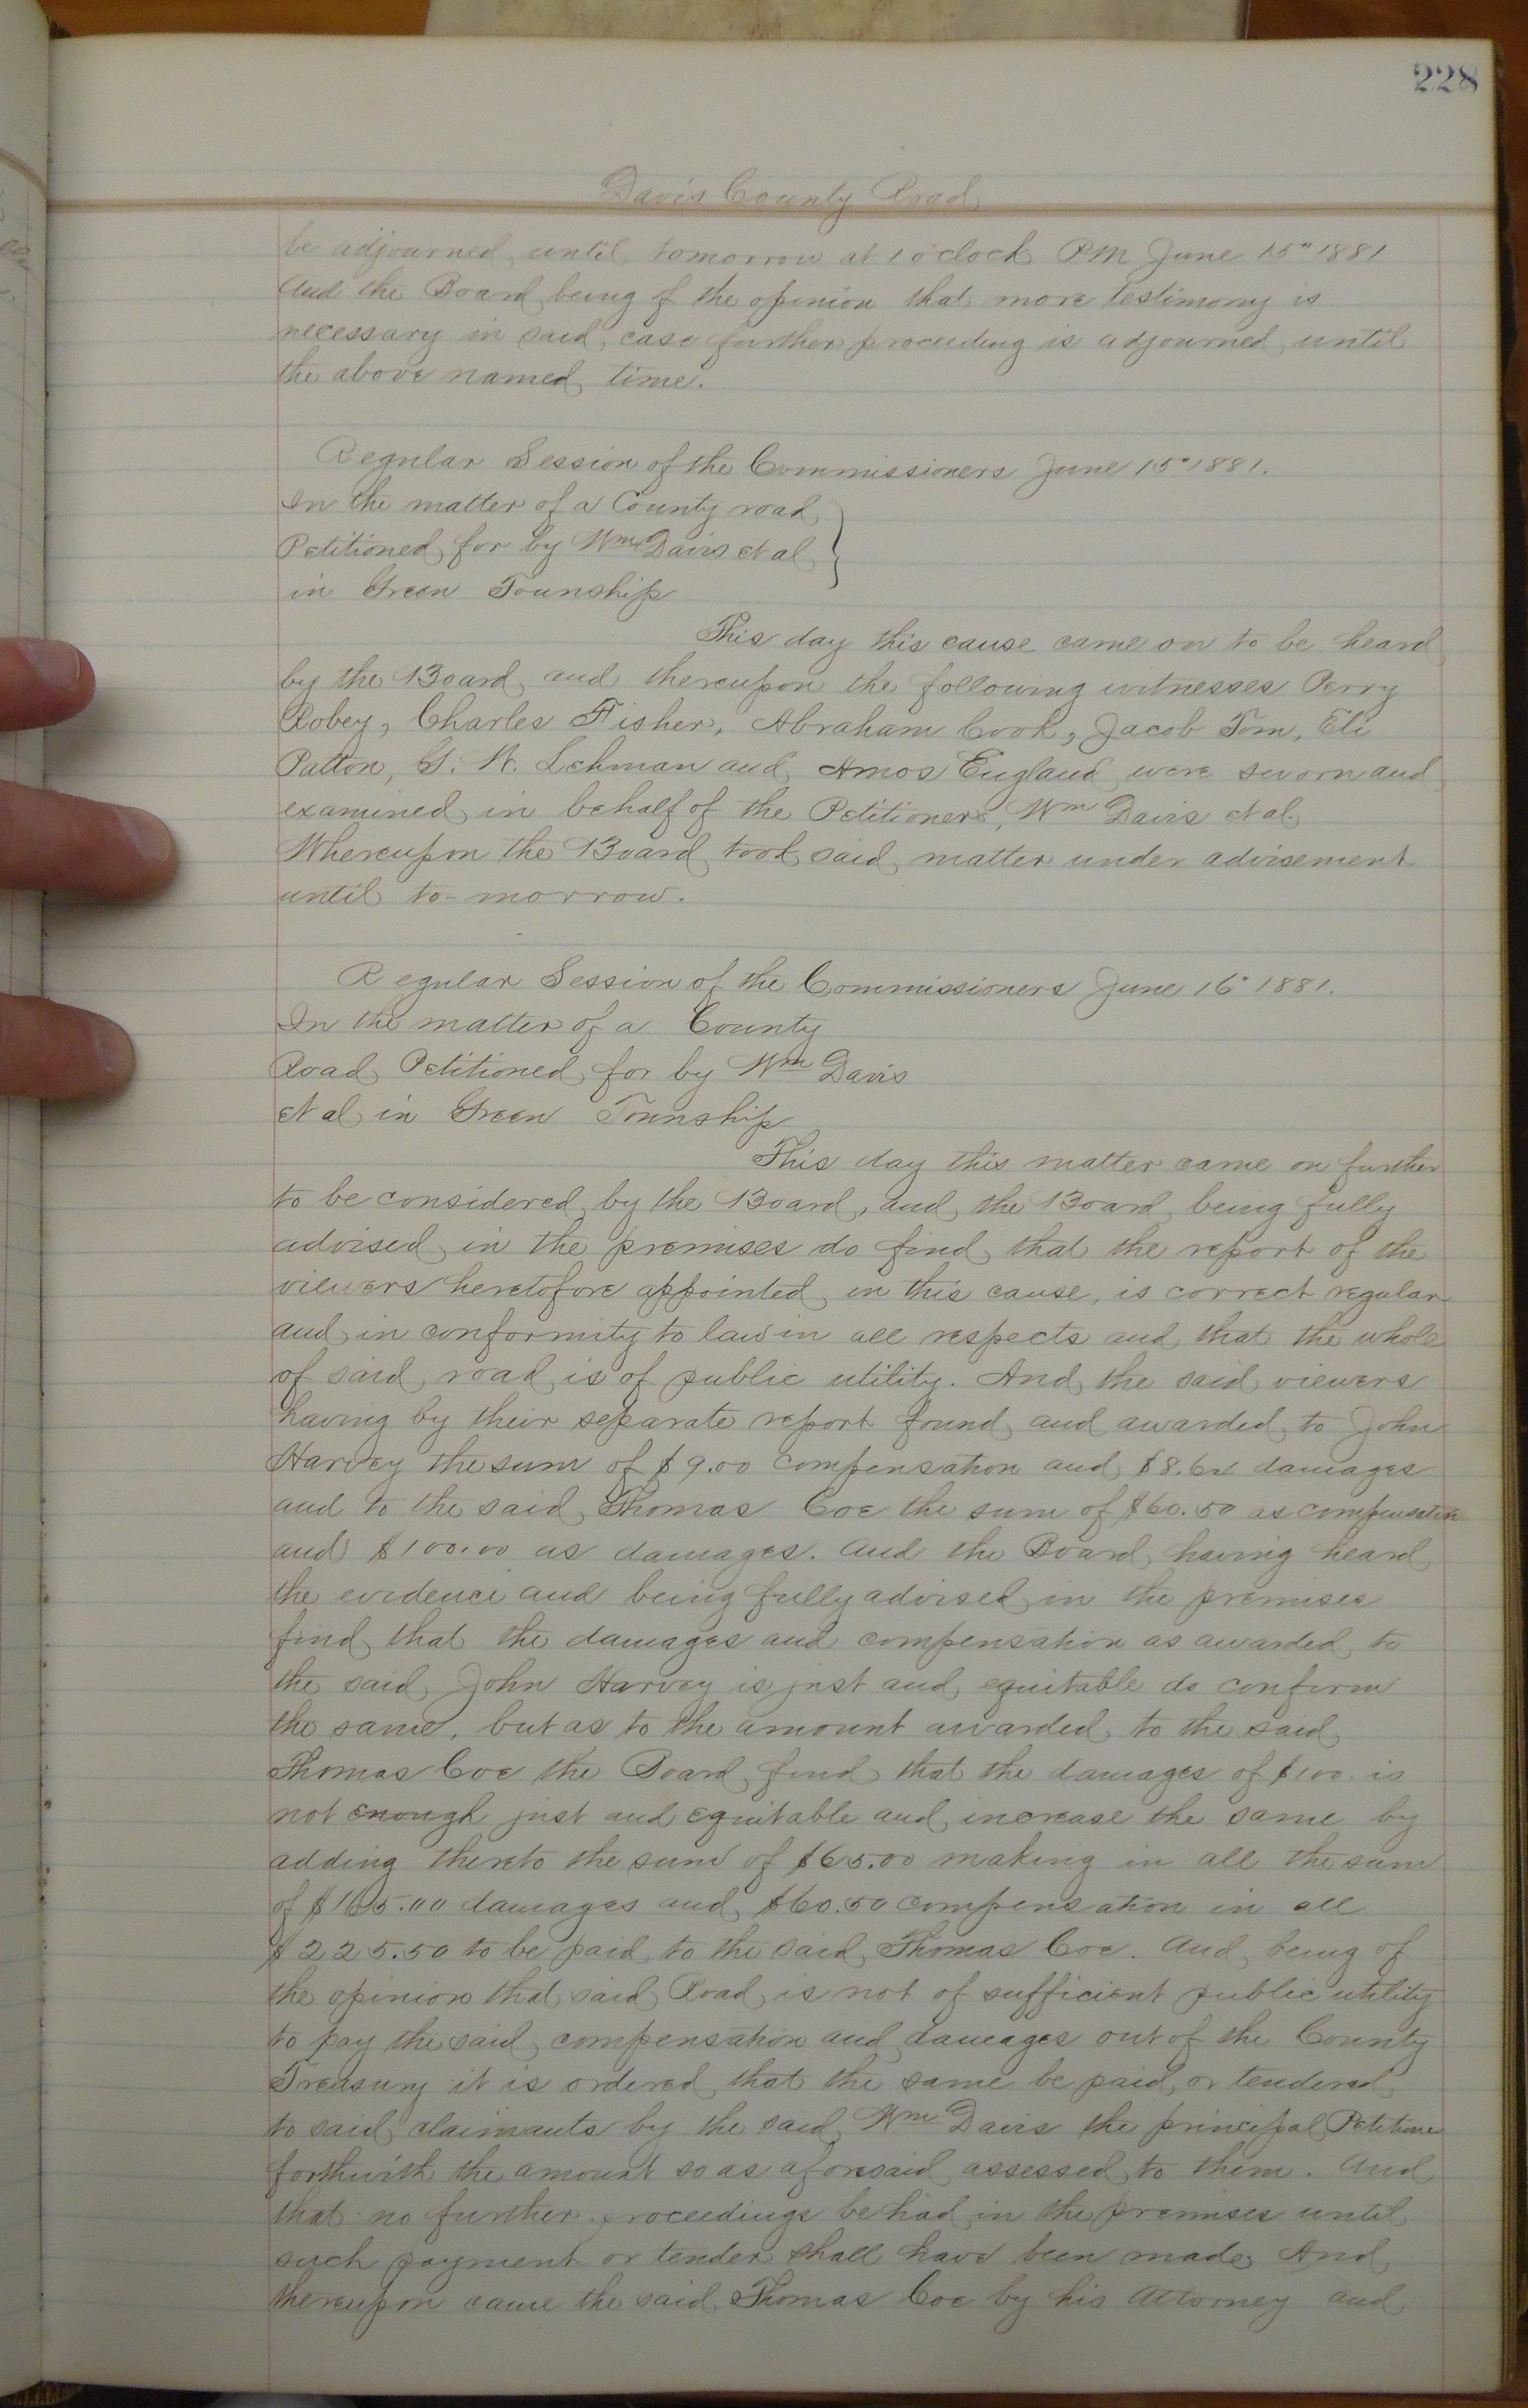 228
Davis County Road
be adjourned until tomorrow at 1 o'clock PM June 15" 1881
And the Board being of the opinion that more testimony is
necessary in said case further proceeding is adjourned until
the above named time.
Regular Session of the Commissioners June 15" 1881.
In the matter of a County road
Petitioned for by Wm Davis et al
in Green Township
This day this cause came on to be heard
by the Board and thereupon the following witnesses Perry
Robey, Charles Fisher, Abraham Cook, Jacob Tom, Eli
Patton, G. W. Lehman and Amos England were sworn and
examined in behalf of the Petitioners, Wm Davis et al.
Whereupon the Board took said matter under advisement
until to-morrow.
Regular Session of the Commissioners June 16" 1881.
In the matter of a County
Road Petitioned for by Wm Davis
et al in Green Township
This day this matter came on further
to be considered by the Board, and the Board being fully
advised in the premises do find that the report of the
viewers heretofore appointed in this cause, is correct regular
and in conformity to law in all respects and that the whole
of said road is of public utility. And the said viewers
having by their separate report found and awarded to John
Harvey the sum of $9.00 compensation and damages
and to the said Thomas Coe the sum of $60.50 as compensation
and $100.00 as damages. And the Board having heard
the evidence and being fully advised in the premises
find that the damages and compensation as awarded to
the said John Harvey is just and equitable do confirm
the same, but as to the amount awarded to the said
Thomas Coe the Board find that the damages of $100. is
not enough just and equitable and increase the same by
adding thereto the sum of $65.00 making in all the sum
of $165.00 damages and $60.50 compensation in all
$225.50 to be paid to the said Thomas Coe. And being of
the opinion that said Road is not of sufficient public utility
to pay the said compensation and damages out of the County
Treasury it is ordered that the same be paid or tendered
to said claimants by the said Wm Davis the principal Petitioner
forthwith the amount so as aforesaid assessed to them. And
that no further proceedings be had in the premises until
such payment or tender shall have been made. And
thereupon came the said Thomas Coe by his Attorney and